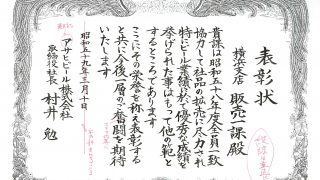 表彰状
横浜支店 販売一課殿
貴課は昭和五十八年度全員一致
協力して社品の拡売に尽力され
特にビール業績状がく優秀な成績を
挙げられた事はもって他の範と
するところであります
ここにその栄誉を称え表彰する
と共に今後一層のご奮闘を期待
いたします
昭和五十九年三月十日
アサヒビール株式会社
取締役社長 村井 勉